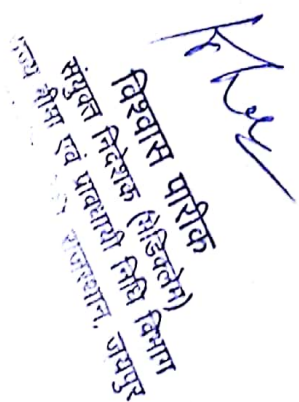 विश्वास पारीक
संयुक्त निदेशक (मेडिक्लेम)
राज्य बीमा एवं प्रावधायी निधि विभाग
राजस्थान, जयपुर